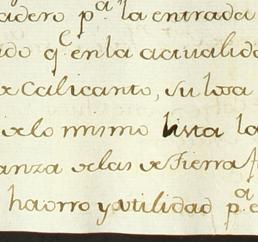 adero pª. la entrada
ado qᵉ. en la actualida
de Calicanto, su losa
delo mismo lista la
anza delas de Tierra f
haorro y utilidad pª.